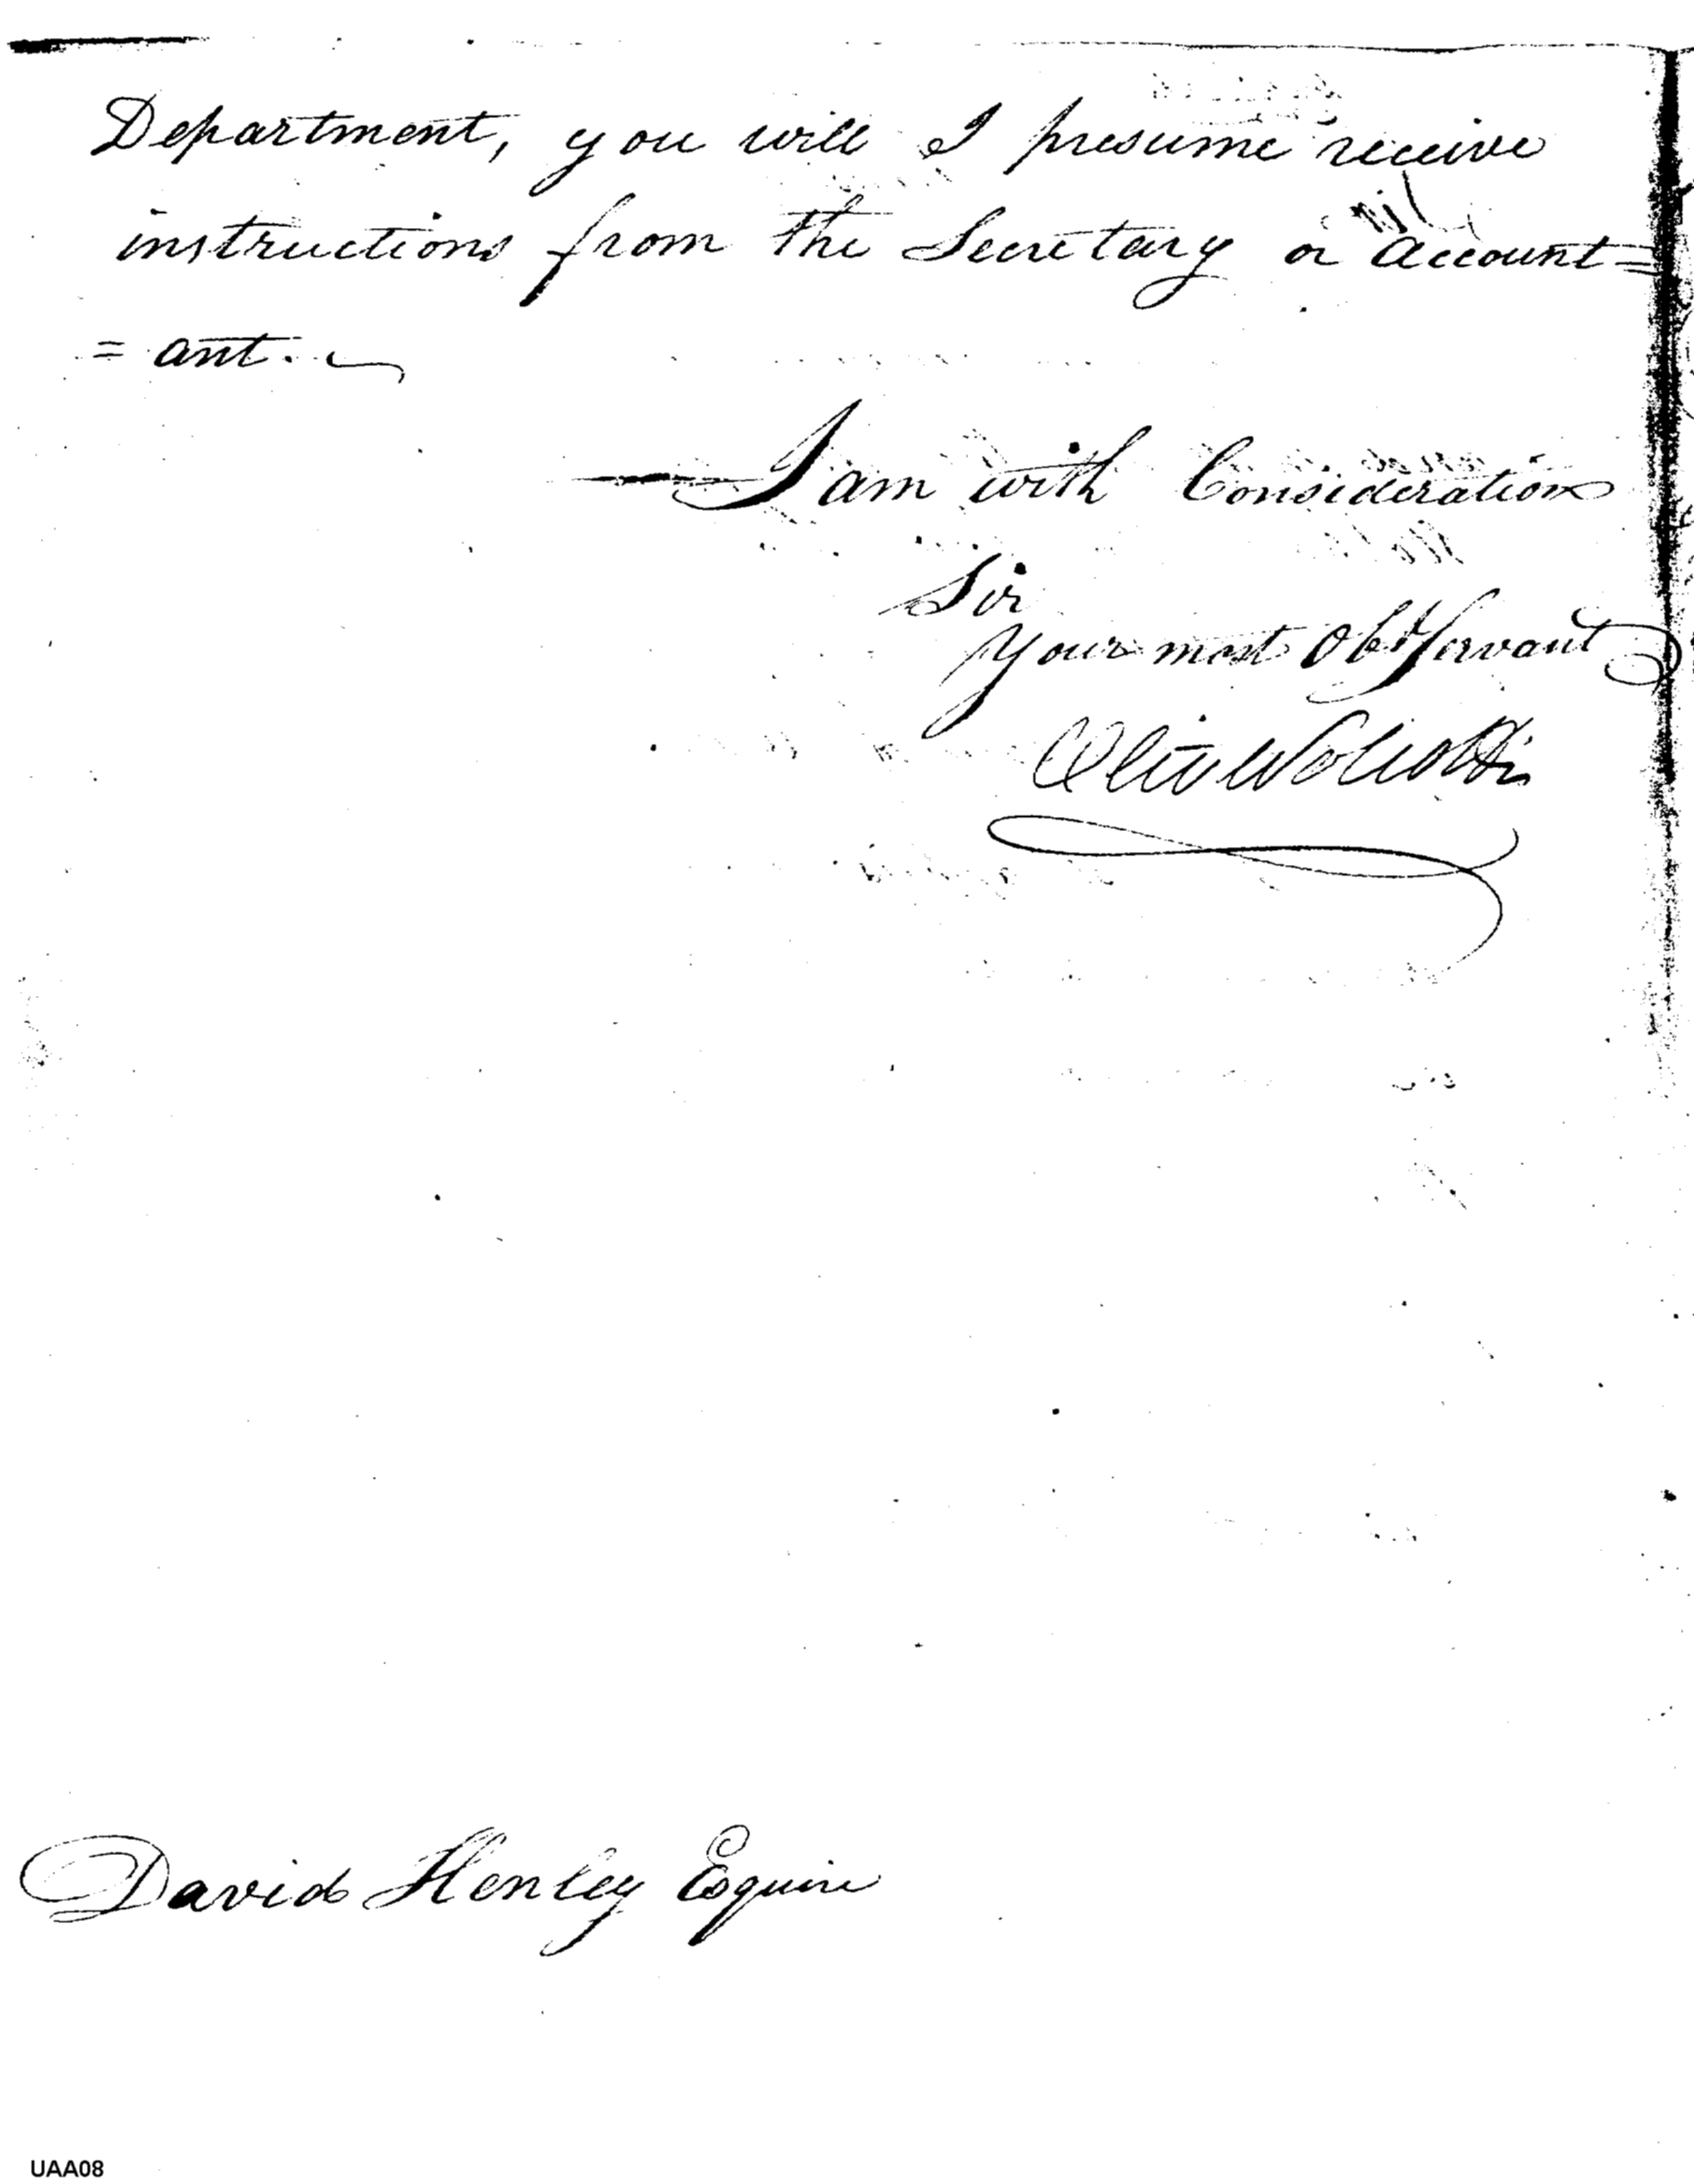 Department, you will I presume receive
instructions from the Secretary or Account=
= ant.
I am with Consideration
Sir
your most Obt Servant
Oliv Wolcott Jr
David Henley Esquire
UAA08